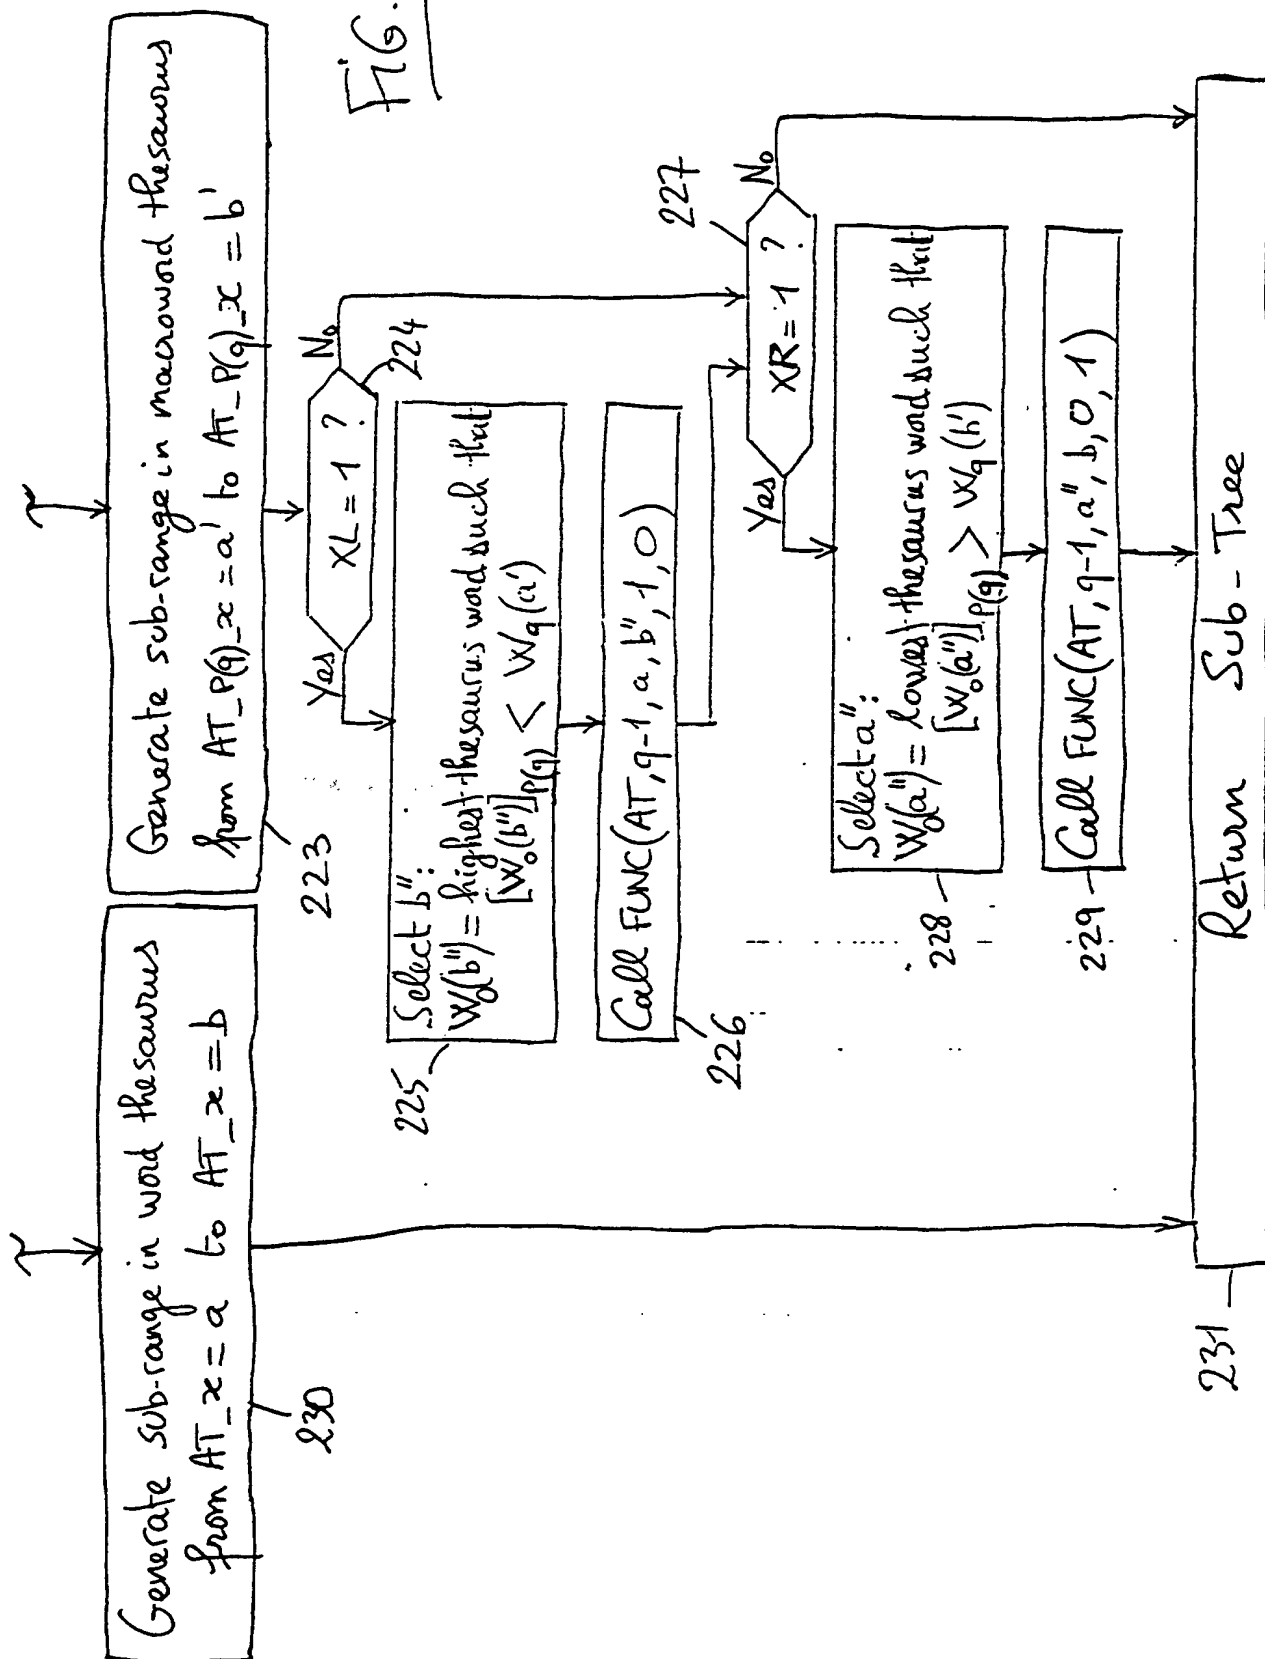 Generate sub-range in word thesaurus
from AT_x = a to AT_x = b
230
Generate sub-range in macroword thesaurus
from AT_P(q)_x = a' to AT_P(q)_x = b'
223
FIG.
XL = 1 ?
Yes
No
224
Select b":
W₀(b") = highest thesaurus word such that
[W₀(b")]P(q) < Wq(a')
225
Call FUNC(AT, q-1, a, b", 1, 0)
226
XR = 1 ?
Yes
No
227
Select a":
W₀(a") = lowest thesaurus word such that
[W₀(a")]P(q) > Wq(b')
228
Call FUNC(AT, q-1, a", b, 0, 1)
229
Return Sub-Tree
231